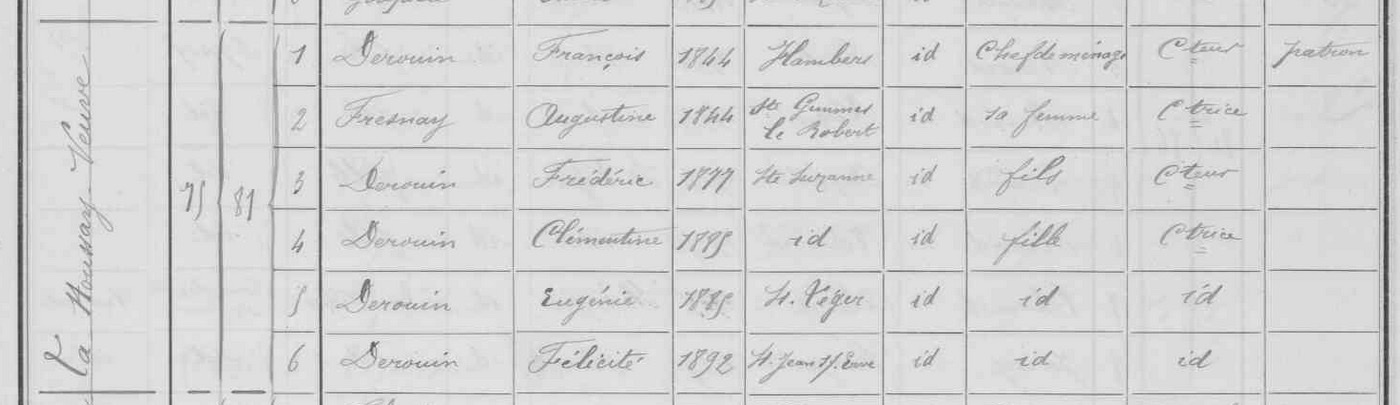 La Houssay Veuve
75 81
1 Derouin François 1844 Hambers id Chef de ménage Cteur patron
2 Fresnay Augustine 1844 Ste Gemmes le Robert id sa femme Ctrice
3 Derouin Frédéric 1877 Ste Suzanne id fils Cteur
4 Derouin Clémentine 1885 id id fille Ctrice
5 Derouin Eugénie St. Léger id id id
6 Derouin Félicité 1892 St. Jean s/. Erve id id id